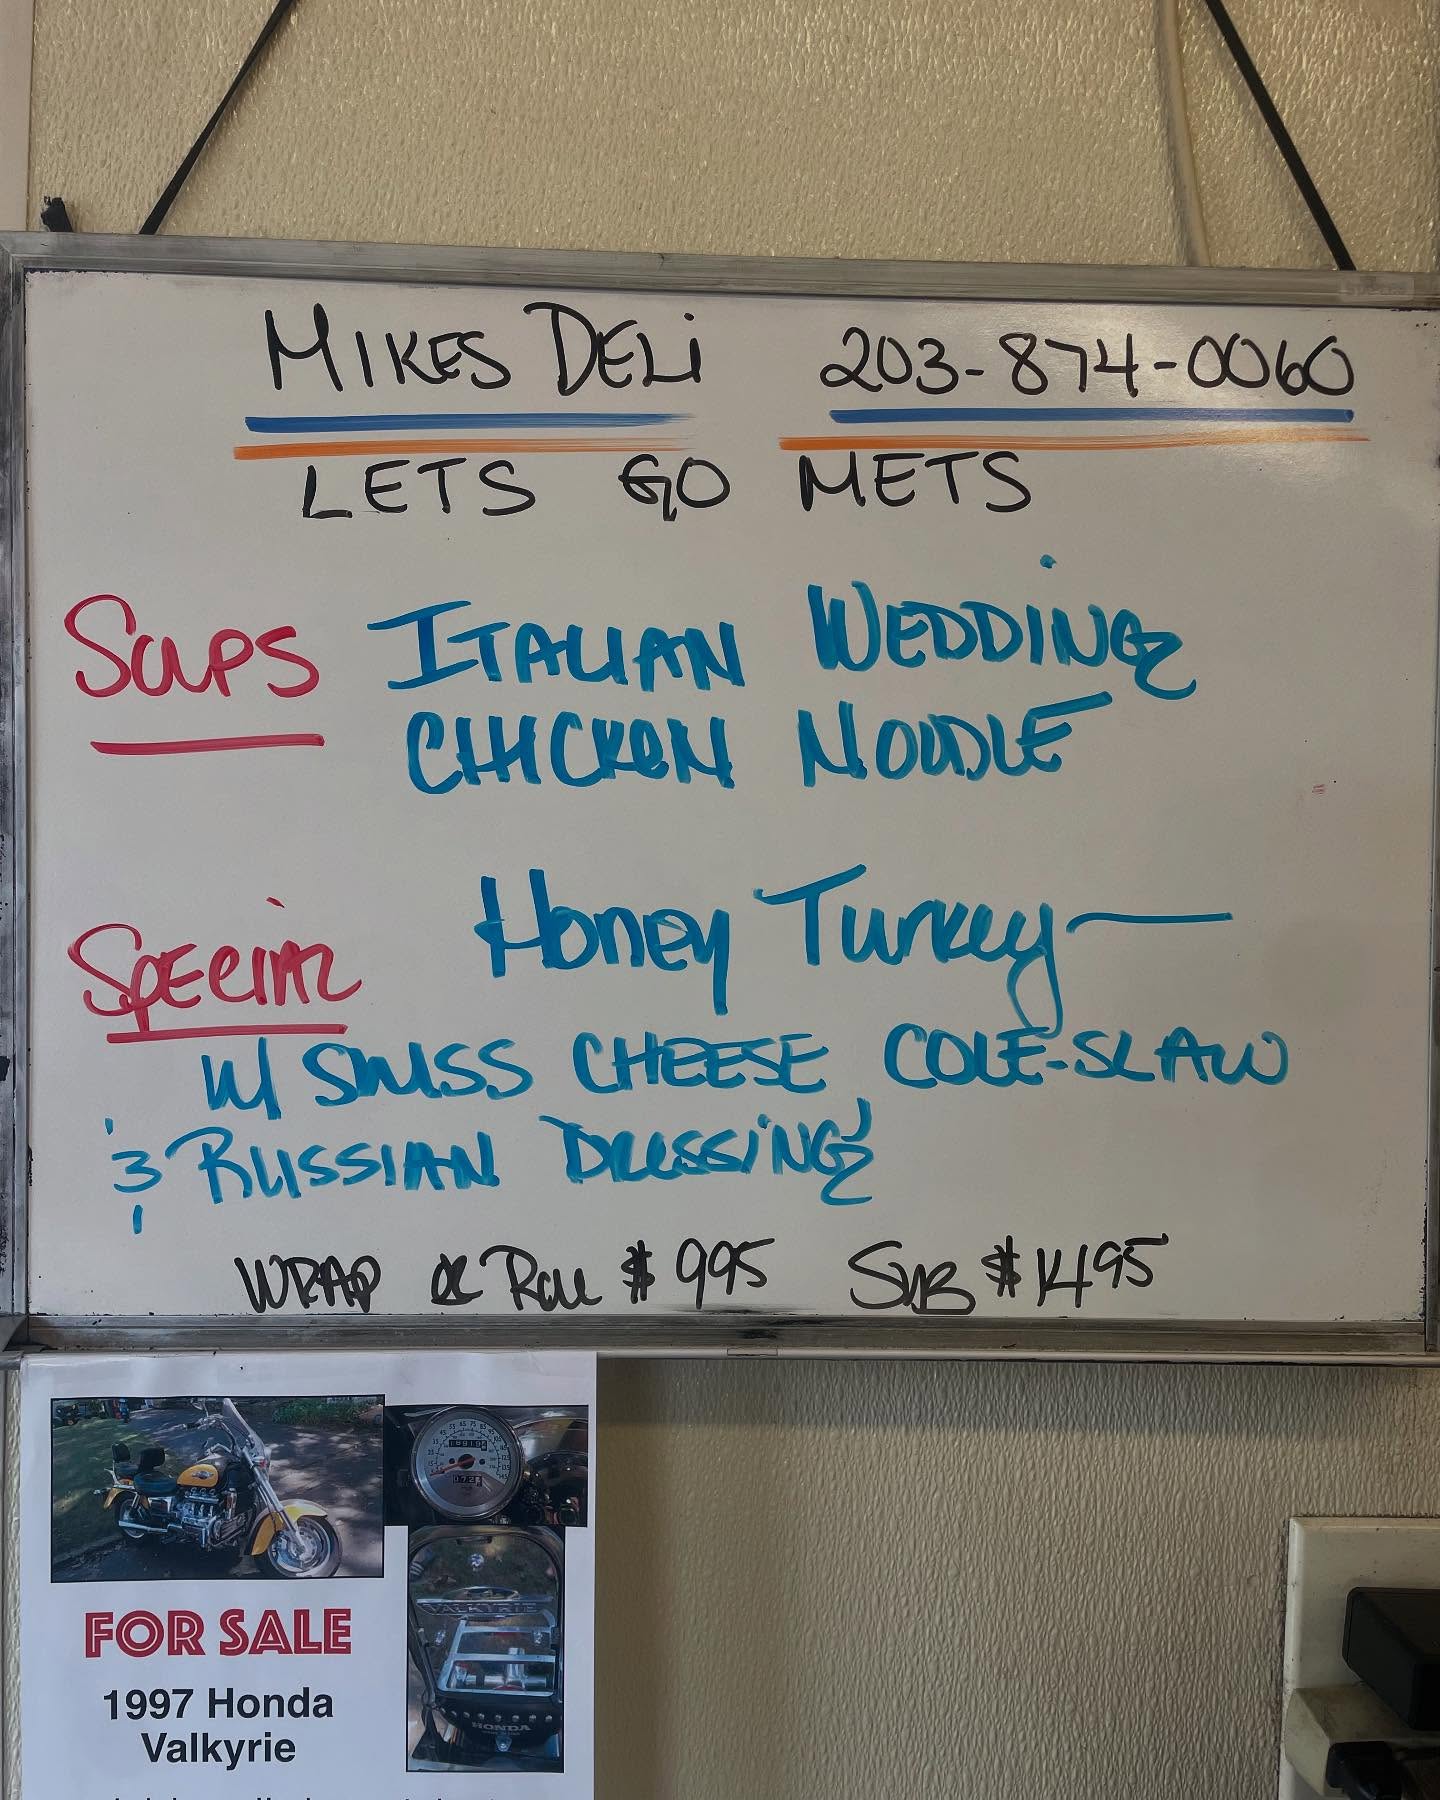 MIKES DELI 203-874-0060
LETS GO METS
SOUPS ITALIAN WEDDING
CHICKEN NOODLE
SPECIAL Honey Turkey
W/ SWISS CHEESE COLE-SLAW
& RUSSIAN DRESSING
WRAP OR ROLL $995 SUB $1495
FOR SALE
1997 Honda
Valkyrie
VALKYRIE
HONDA